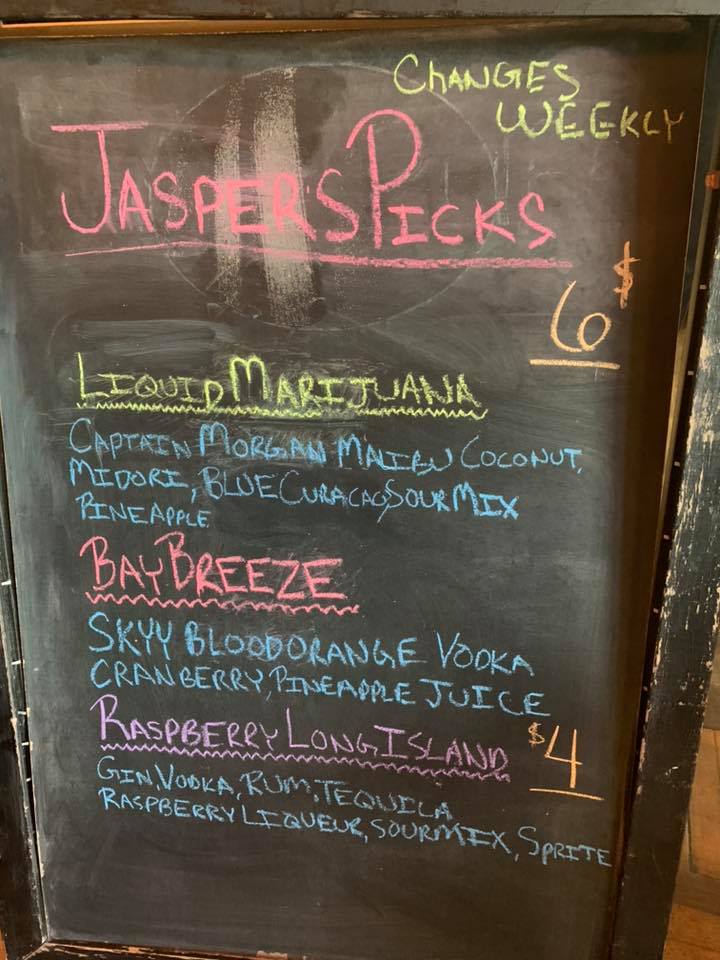 CHANGES
WEEKLY
JASPER'S PICKS
6$
LIQUID MARIJUANA
CAPTAIN MORGAN MALIBU COCONUT,
MIDORI, BLUE CURACAO, SOUR MIX
PINEAPPLE
BAY BREEZE
SKYY BLOOD ORANGE VODKA
CRANBERRY, PINEAPPLE JUICE
RASPBERRY LONG ISLAND $4
GIN, VODKA, RUM, TEQUILA
RASPBERRY LIQUEUR, SOURMIX, SPRITE